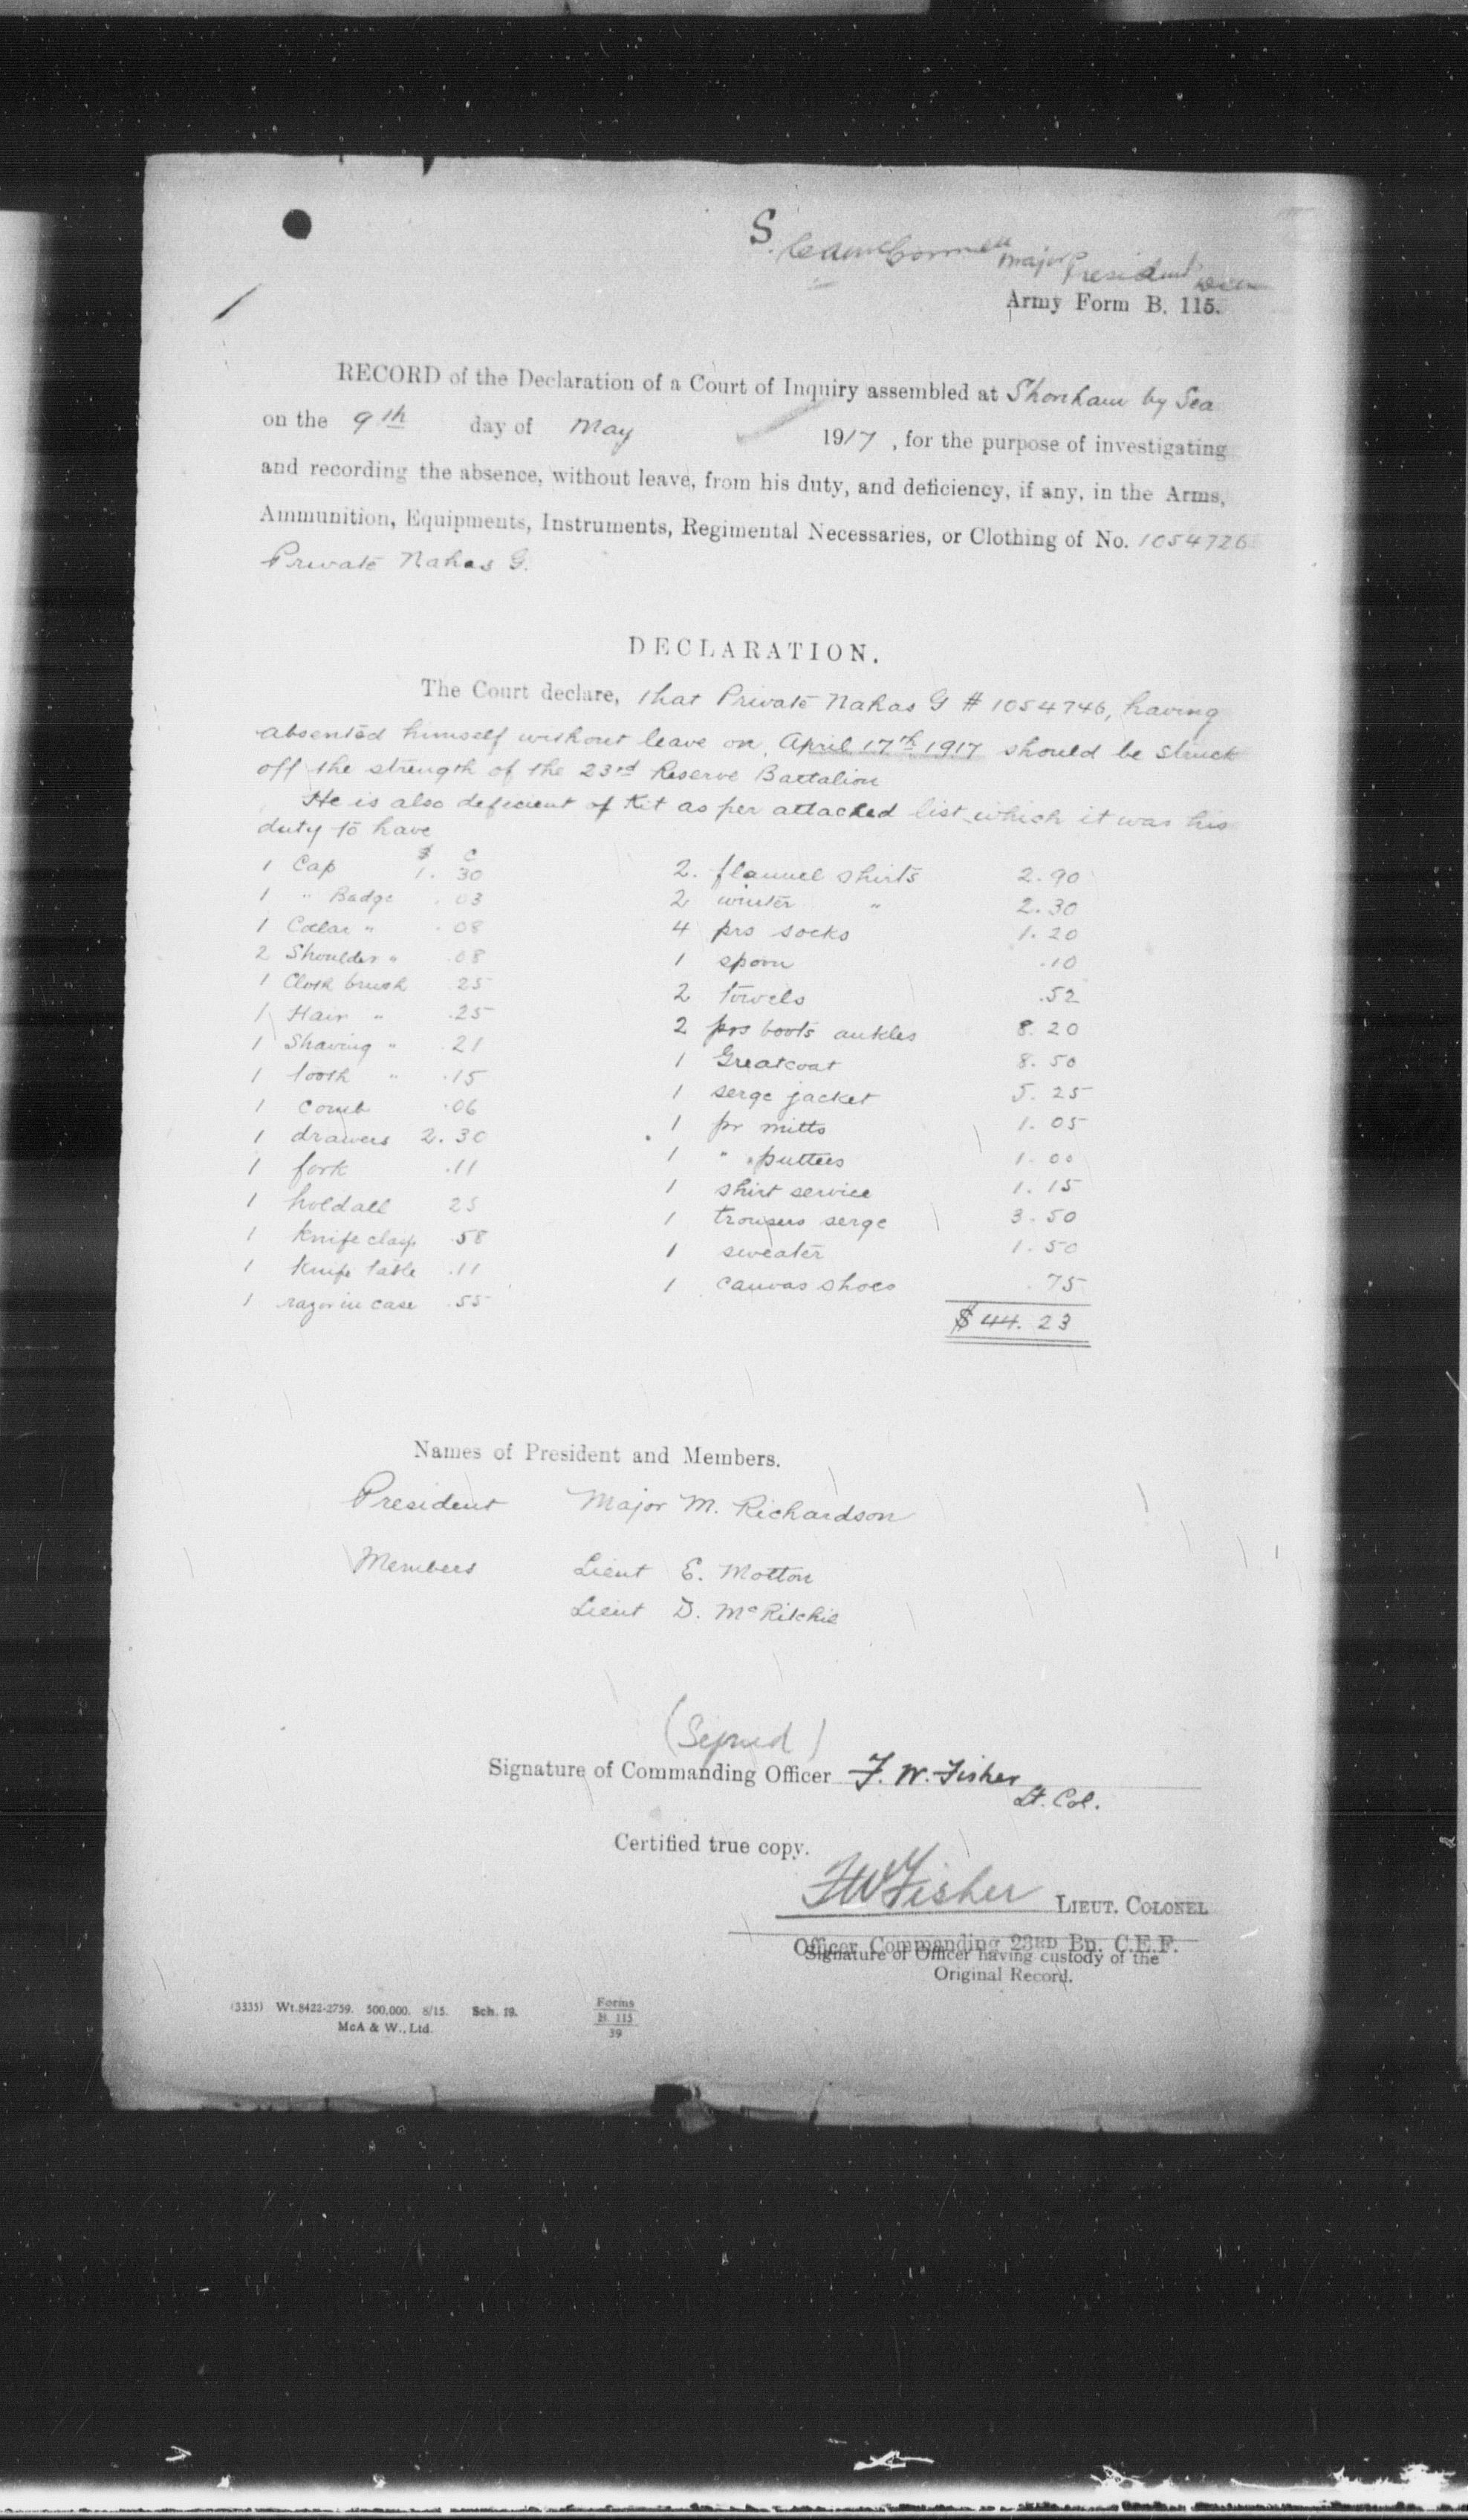 S.
Major President
Army Form B. 115.
RECORD of the Declaration of a Court of Inquiry assembled at Shoreham by Sea
on the 9th day of May 1917, for the purpose of investigating
and recording the absence, without leave, from his duty, and deficiency, if any, in the Arms,
Ammunition, Equipments, Instruments, Regimental Necessaries, or Clothing of No. 1054726
Private Nahas G.
DECLARATION.
The Court declare, that Private Nahas G # 1054746, having
absented himself without leave on, April 17th 1917 should be struck
off the strength of the 23rd Reserve Battalion
He is also deficient of Kit as per attached list which it was his
duty to have
$ c
1 Cap 1. 30
1 " Badge .03
1 Collar " .08
2 Shoulder " .08
1 Cloth brush 25
1 Hair " .25
1 Shaving " .21
1 tooth " .15
1 comb .06
1 drawers 2. 30
1 fork .11
1 holdall 25
1 knife clasp .58
1 knife table .11
1 razor in case .55
2. flannel shirts 2.90
2 winter " 2.30
4 prs socks 1.20
1 spoon .10
2 towels .52
2 prs boots ankles 8.20
1 Greatcoat 8.50
1 serge jacket 5.25
1 pr mitts 1.05
1 " puttees 1.00
1 shirt service 1.15
1 trousers serge 3.50
1 sweater 1.50
1 canvas shoes .75
$ 44. 23
Names of President and Members.
President Major M. Richardson
Members Lieut E. Motton
Lieut D. McRitchie
(Signed)
Signature of Commanding Officer F. W. Fisher
Lt. Col.
Certified true copy.
FWFisher LIEUT. COLONEL
Officer Commanding 23RD Bn. C.E.F.
Signature of Officer having custody of the
Original Record.
(3335) Wt.8422-2759. 500,000. 8/15. Sch. 19.
McA & W., Ltd.
Forms
B. 115
39